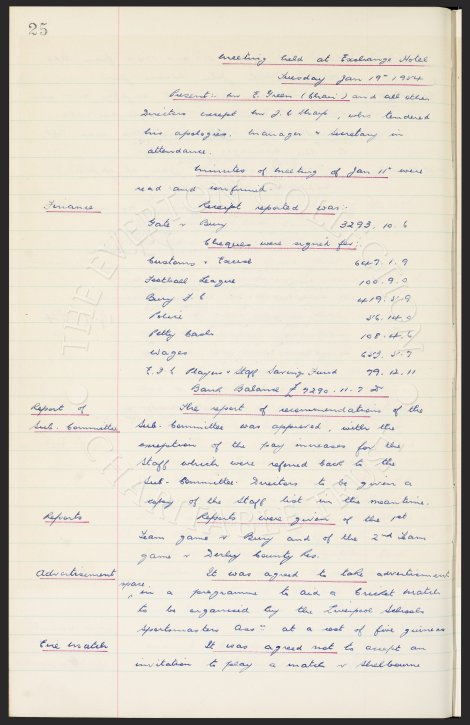 25
Meeting held at Exchange Hotel
Tuesday Jan 19th 1954
Present:- Mr E. Green (Chair) and all other
Directors except Mr J. C Sharp, who tendered
his apologies. Manager & Secretary in
attendance.
Minutes of meeting of Jan 11th were
read and confirmed
Finance Receipt reported was:-
Gate v Bury 3293. 10. 6
Cheques were signed for:-
Customs & Excise 647. 1. 9
Football League 100. 9. 0
Bury F. C 419. 5. 9
Police 56. 14. 0
Petty Cash 108. 4. 6
Wages 653. 5. 9
E. F. C Players & Staff Savings Fund 79. 12. 11
Bank Balance £ 9290. 11. 7
Report of The report of recommendations of the
Sub. Committee Sub-Committee was approved, with the
exception of the pay increases for the
Staff which were referred back to the
Sub-Committee. Directors to be given a
copy of the Staff list in the meantime.
Reports Reports were given of the 1st
Team game v Bury and of the 2nd Team
game v Derby County Res.
Advertisement It was agreed to take advertisement
space
in a programme to aid a Cricket match
to be organised by the Liverpool Schools
Sportsmasters Assn at a cost of five guineas
Eire match It was agreed not to accept an
invitation to play a match v Shelbourne
THE EVERTON COLLECTION
CHARITABLE